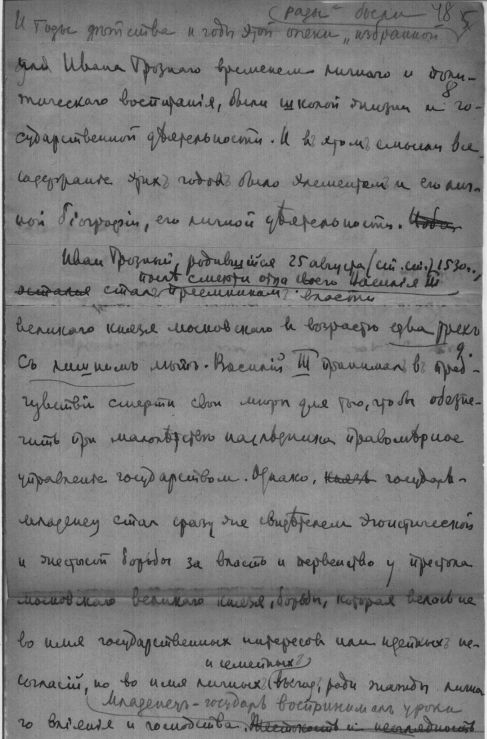 рады" были 48 5
И годы детства и годы этой опеки „избранной
для Ивана Грозного временем личного и поли-
тическаго воспитанія, были школой жизни и го-
8
сударственной дѣятельности. И въ этомъ смыслѣ все
содержание этихъ годовъ было элементомъ и его лич-
ной біографіи, его личной дѣятельности.
Иван Грозный, родившійся 25 августа (ст. ст.) 1530 г.,
послѣ смерти отца своего Василія III
остался сталъ преемникомъ власти
великаго князя московскаго в возрастѣ едва трехъ
съ лишнимъ лѣтъ. Василій III принималъ в пред-
чувствіи смерти свои мѣры для того, чтобы обезпе-
чить при малолѣтствѣ наслѣдника правомѣрное
управление государством. Однако, князь государь-
младенец стал сразу же свидѣтелем эгоистической
и жестокой борьбы за власть и первенство у престола
московскаго великаго князя, борьбы, которая велась не
во имя государственных интересов или идейныхъ не-
и семейныхъ
согласій, но во имя личных выгод, ради жажды лична
Младенец-государь воспринималъ уроки
го вліянія и господства. Жестокость и